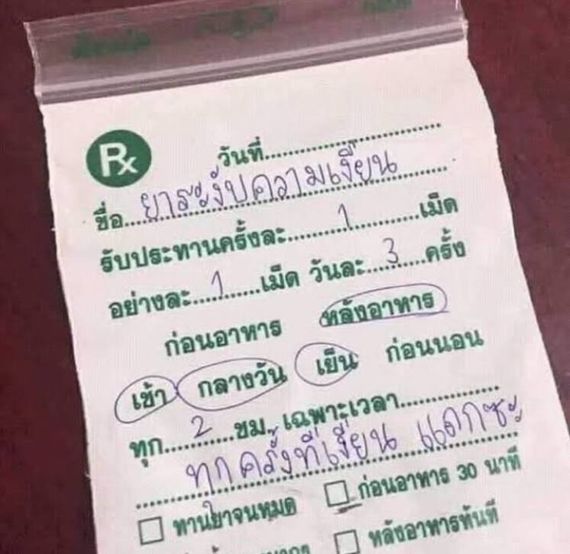 Rx
วันที่....................
ชื่อ....ยาระงับความเงี่ยน
รับประทานครั้งละ........1........เม็ด
อย่างละ...1....เม็ด วันละ...3...ครั้ง
ก่อนอาหาร หลังอาหาร
เช้า กลางวัน เย็น ก่อนนอน
ทุก...2...ชม. เฉพาะเวลา............
ทุกครั้งที่เงี่ยน แดกซะ
ทานยาจนหมด ก่อนอาหาร 30 นาที
หลังอาหารทันที